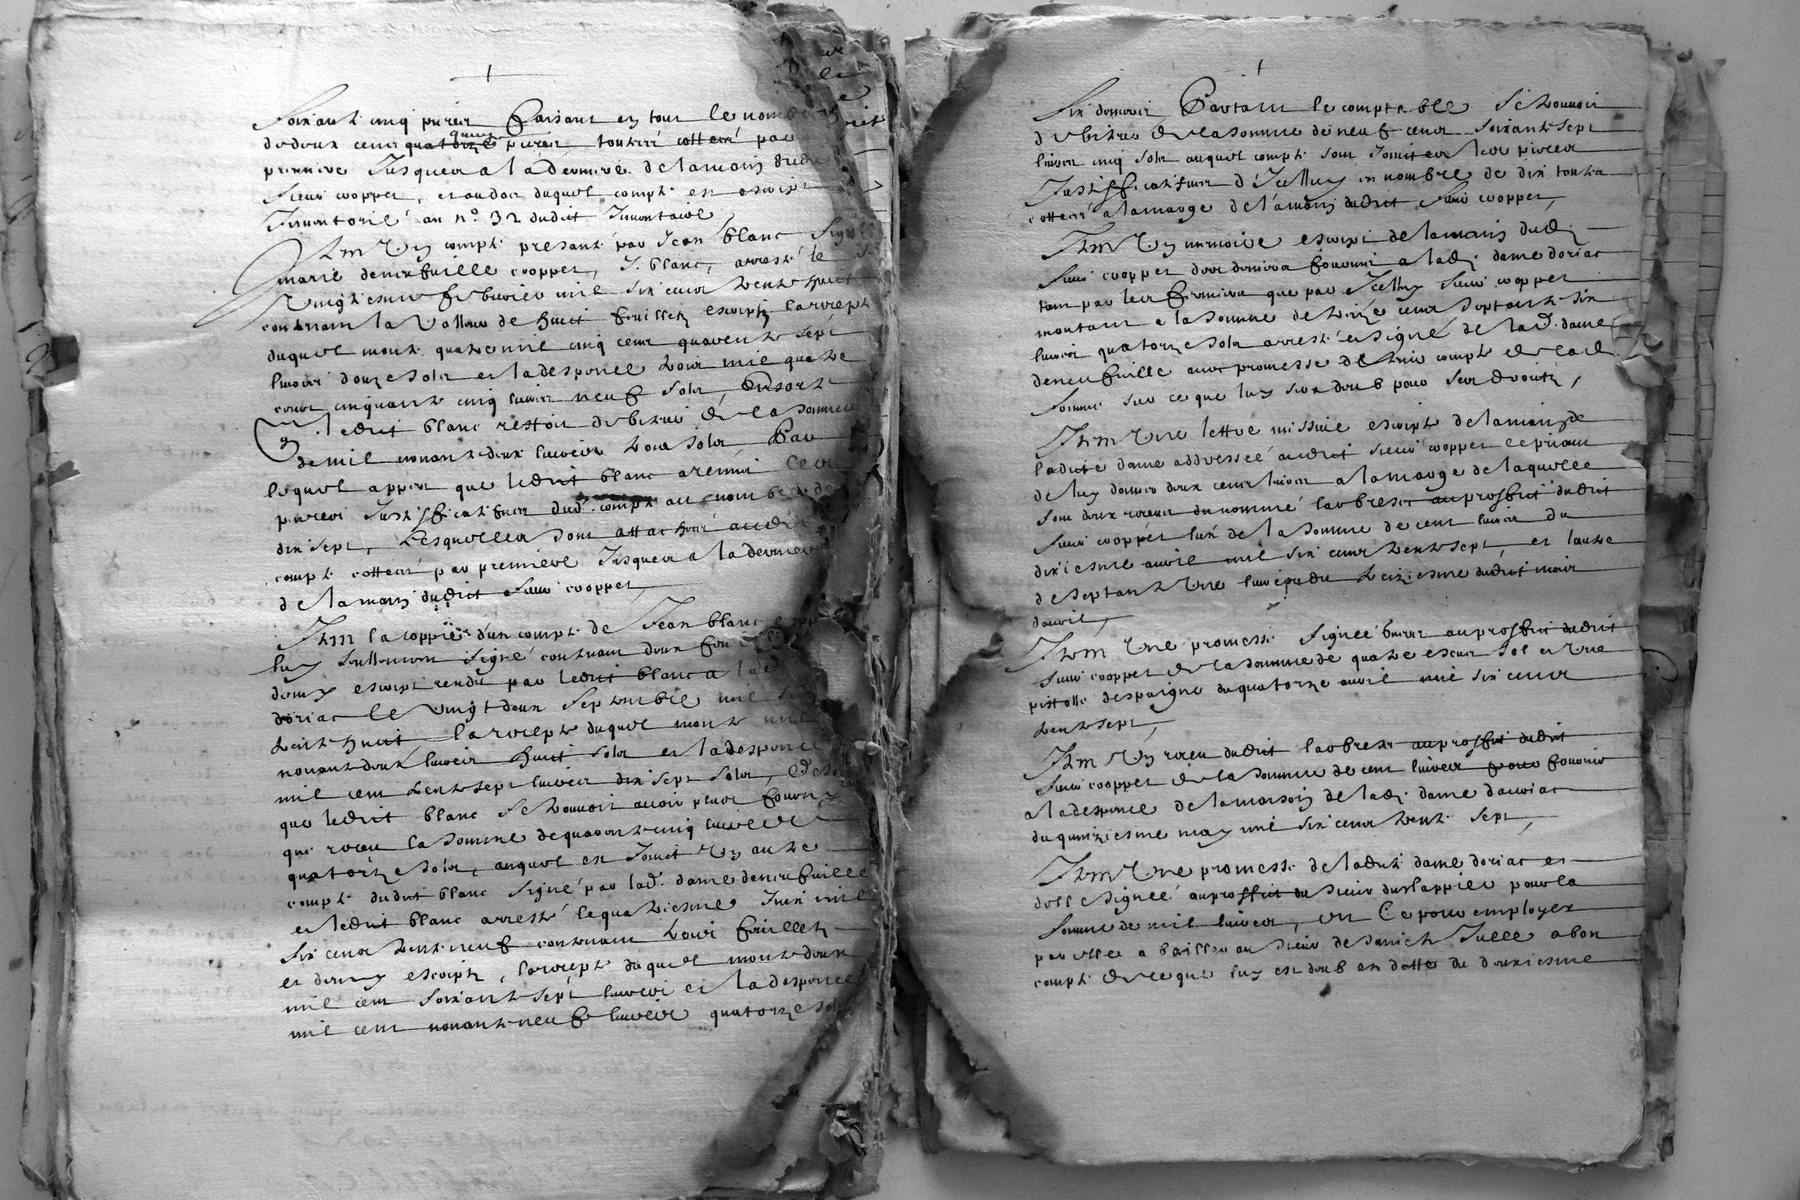 Soixante cinq pieces faisant en tout le nombre
de deux cens quatorze quinze pieces, touttes cotteés par
premiere Jusques a la derniere de la main dudit
sieur coopper, et au dos duquel compte est escript
Inventorié au n° 32 dudit Inventaire,
Item Un compte presanté par Jean blanc signé
marie deneufville coopper, J. blanc, arresté le
Vingtiesme febvrier mil six cens trente huict
contenant la valleur de huict feuillets escripts la recepte
duquel monte quatre mil cinq cens quarente sept
livres douze solz et la despence trois mil quatre
cens cinquante cinq livres neuf solz, De sorte
que ledit blanc restoit debiteur de la somme
de mil nonante deux livres trois solz Par
lequel appert que ledit blanc a remis les
pieces Justifficatifves dud. compte au nombre de
dix sept, Lesquelles sont attachées audit
compte cotteés par premiere Jusques a la derniere
de la main dudict sieur coopper,
Item la coppie d'un compte de Jean blanc
luy seullement signé contenant deux feuillets
demy escript rendu par ledit blanc a la
doriac le vingt deux septembre mil six
trente huict, la recepte duquel monte mil
nonante deux livres huict solz et la despence
mil cent trente sept livres dix sept solz,
que ledit blanc se trouvoit avoir plus fourny
que receu la somme de quarante cinq livres
quatorze solz, auquel est Joinct Un autre
compte dudit blanc signé par lad. dame deneufville
et ledit blanc arresté le quatriesme Juin mil
six cens trente neuf contenant trois feuillets
et demy escripts, la recepte duquel monte deux
mil cent soixante sept livres et la despence
mil cent nonante neuf livres quatorze solz
six deniers Partant le comptable se trouvoit
debiteur de la somme de neuf cens soixante sept
livres cinq solz auquel compte sont Joinctes les pieces
Justifficatifves d'Icelluy en nombre de dix touttes
cotteés a la marge de la main dudit sieur coopper,
Item Un memoire escript de la main dud.
sieur coopper des deniers fournis a lad. dame doriac
tant par les fermiers que par Icelluy sieur coopper
montant a la somme de treize cens septante six
livres quatorze solz arresté et signé de lad. dame
deneufville avec promesse de tenir compte de lad.
somme sur ce que luy sera deub pour ses droictz,
Item Une lettre missive escripte de la main de
ladicte dame addresseé audict sieur coopper le priant
de luy donner deux cens livres a la marge de laquelle
sont deux receus du nommé labreste au proffict dudit
sieur coopper l'un de la somme de cent livres du
dixiesme avril mil six cens trente sept, et l'autre
de septante Une livres du treiziesme dudict mois
davril,
Item Une promesse signeé au proffict dudit
sieur coopper de la somme de quatre escus sol et une
pistolle despaigne du quatorze avril mil six cens
trente sept,
Item Un receu dudit labreste au proffict dudit
sieur coopper de la somme de cent livres pour fournir
a la despence de la maison de lad. dame dauriac
du quinziesme may mil six cens trente sept,
Item Une promesse de ladite dame doriac et
delle signeé au proffict du sieur duclappier pour la
somme de mil livres, pour employer
par elle a bailler au sieur de Jullé a bon
compte de ce que luy est deub en datte du douxiesme